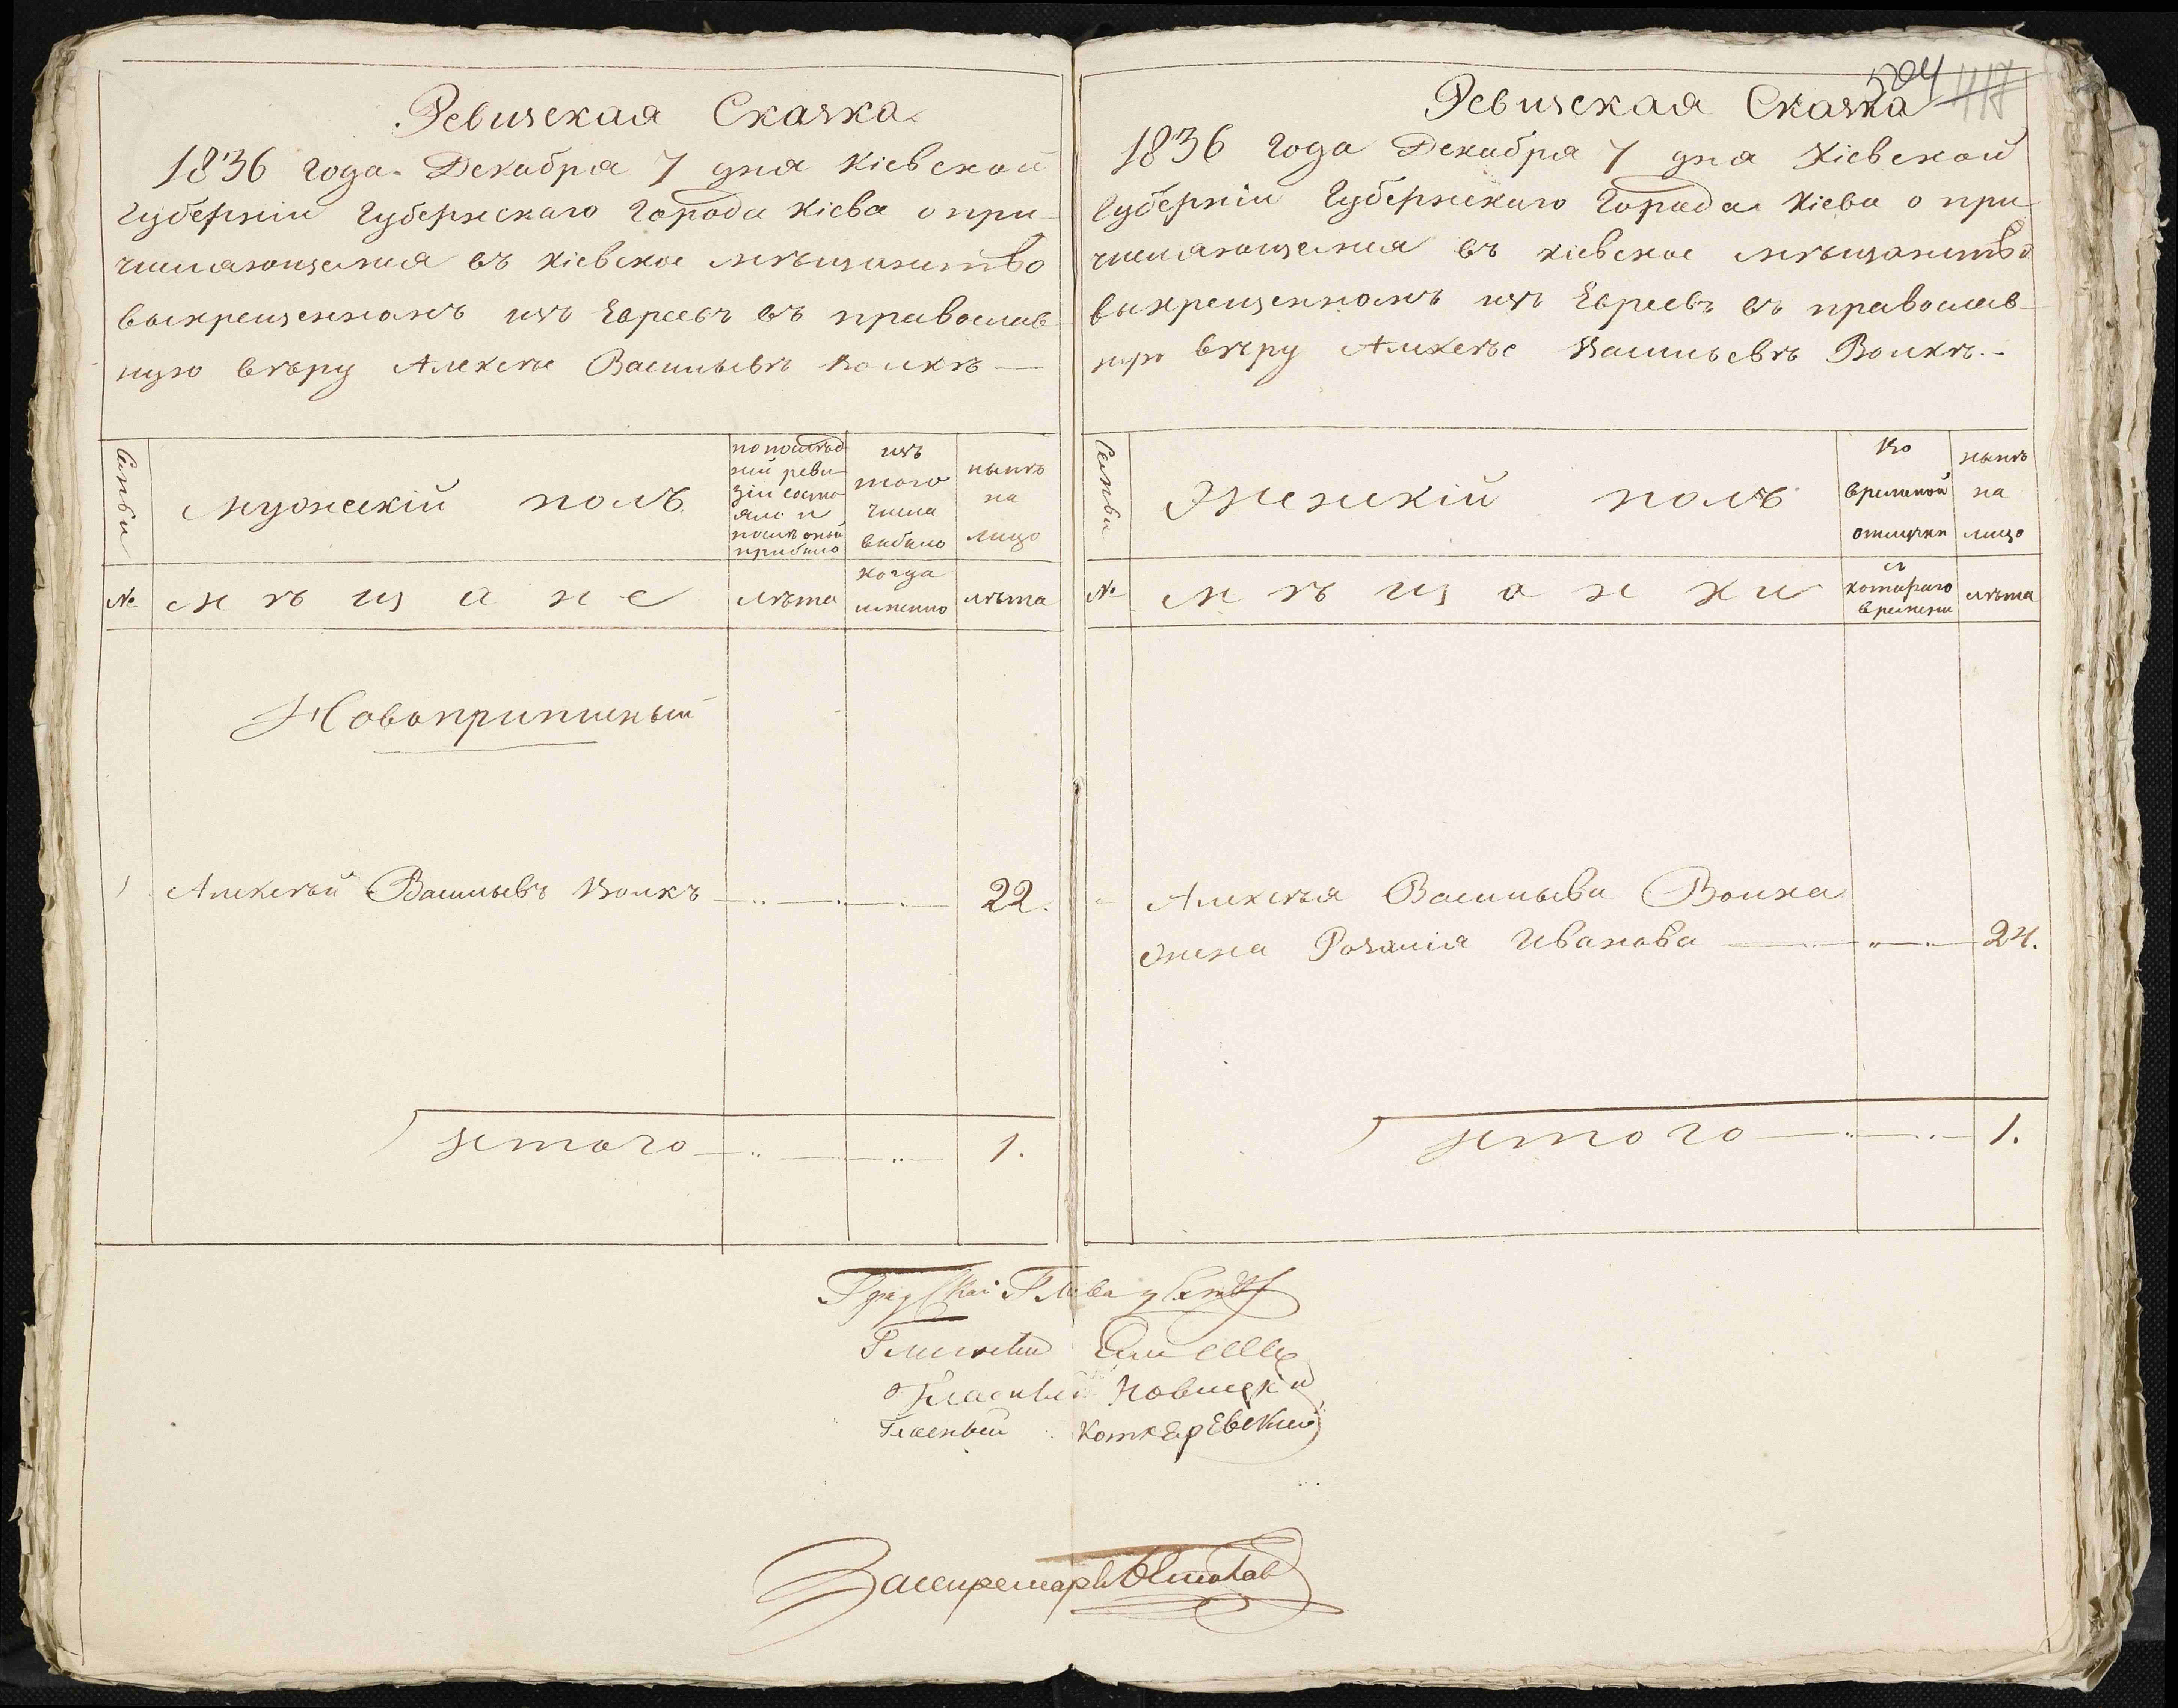 Ревизская Сказка
1836 года Декабря 7 дня Кіевской
Губерніи Губернскаго Города Кіева о при-
числяющемся въ Кіевское мѣщанство
выкрещенномъ изъ Евреевъ въ православ-
ную вѣру Алексѣе Васильевѣ Волкѣ —
Семьи
Мужескій полъ
по послѣд-
ней реви-
зіи состо
яло и
послѣ оной
прибыло
изъ
того
числа
выбыло
нынѣ
на
лицо
№
мѣщане
лѣта
когда
именно
лѣта
Новоприписный
1 Алексѣй Васильевъ Волкъ 22.
Итого 1.
504 417
Ревизская Сказка
1836 года Декабря 7 дня Кіевской
Губерніи Губернскаго Города Кіева о при
числяющемся въ кіевское мѣщанство
выкрещенномъ изъ Евреевъ въ православ-
ную вѣру Алексѣе Васильевѣ Волкѣ.-
Семьи
Женскій полъ
Во
временной
отлучки
нынѣ
на
лицо
№
мѣщанки
съ
котораго
времени
лѣта
Алексѣя Васильева Волка
жена Розалія Иванова 24.
Итого 1.
Градской Глава
Гласный
Гласный Новицкій
Гласный
За секретаря